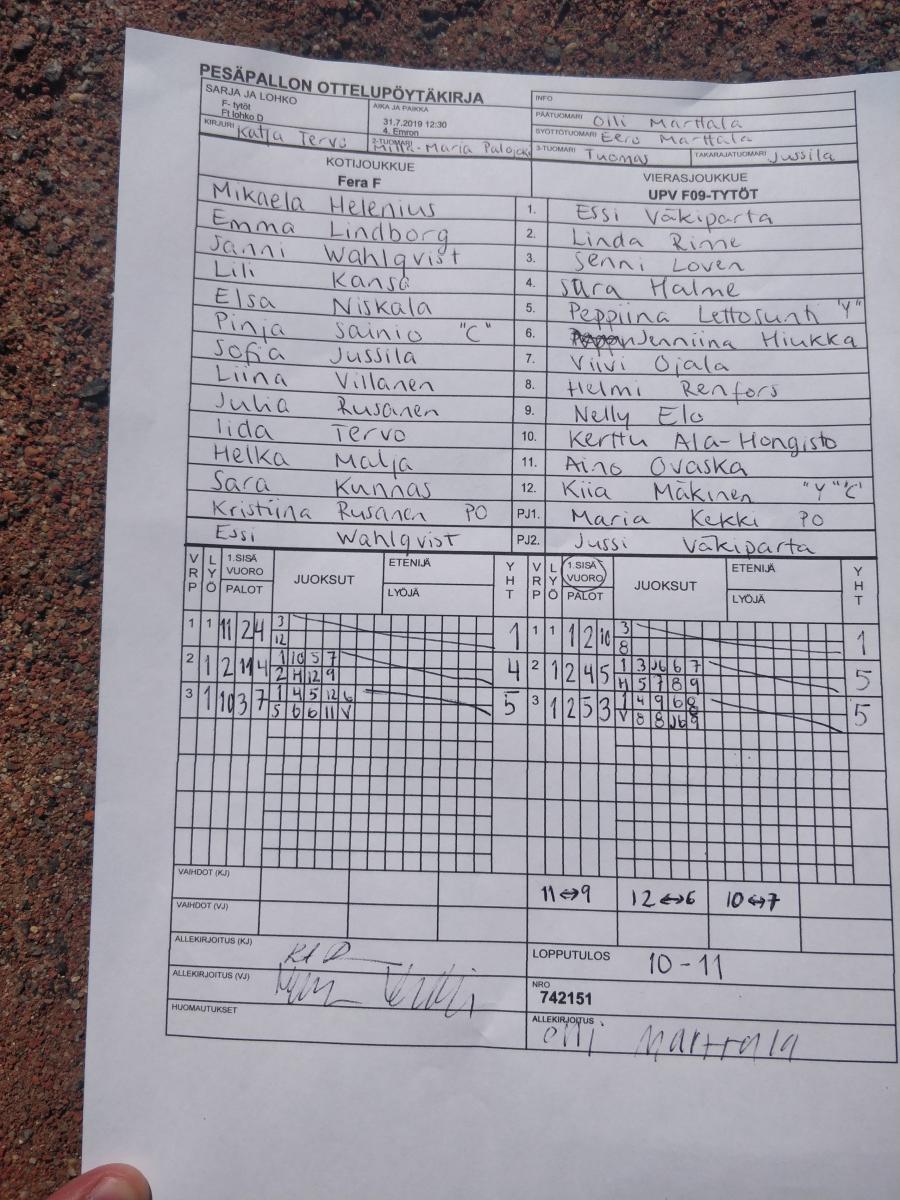 PESÄPALLON OTTELUPÖYTÄKIRJA
SARJA JA LOHKO
F- tytöt
Ft lohko D
AIKA JA PAIKKA
31.7.2019 12:30
4. Emron
INFO
PÄÄTUOMARI Olli Marttala
SYÖTTÖTUOMARI Eero Marttala
KIRJURI Katja Tervo
2-TUOMARI Milla-Maria
3-TUOMARI Tuomas
TAKARAJATUOMARI Jussila
KOTIJOUKKUE
Fera F
VIERASJOUKKUE
UPV F09-TYTÖT
Mikaela Helenius 1. Essi Väkiparta
Emma Lindborg 2. Linda Rinne
Janni Wahlqvist 3. Senni Loven
Lili Kansa 4. Sara Halme
Elsa Niskala 5. Peppiina Lettosunti "Y"
Pinja Sainio "C" 6. Jenniina Hiukka
Sofia Jussila 7. Viivi Ojala
Liina Villanen 8. Helmi Renfors
Julia Rusanen 9. Nelly Elo
Iida Tervo 10. Kerttu Ala-Hongisto
Helka Malja 11. Aino Ovaska
Sara Kunnas 12. Kiia Mäkinen "Y" "C"
Kristiina Rusanen PO PJ1. Maria Kekki PO
Essi Wahlqvist PJ2. Jussi Väkiparta
VRP LYÖ 1.SISÄ VUORO PALOT JUOKSUT ETENIJÄ LYÖJÄ YHT VRP LYÖ 1.SISÄ VUORO PALOT JUOKSUT ETENIJÄ LYÖJÄ YHT
1 1 11 2 4 3 1 1 1 1 2 10 3 1
12 8
2 1 2 11 4 1 10 5 7 4 2 1 2 4 5 1 3 J6 6 7 5
2 H 12 9 H 5 7 8 9
3 1 10 3 7 1 4 5 12 6 5 3 1 2 5 3 1 4 9 6 8 5
5 6 6 11 V V 8 8 J6 9
VAIHDOT (KJ) 11↔9 12↔6 10↔7
VAIHDOT (VJ)
ALLEKIRJOITUS (KJ)
LOPPUTULOS 10-11
ALLEKIRJOITUS (VJ)
NRO
742151
HUOMAUTUKSET
ALLEKIRJOITUS
Olli Marttala